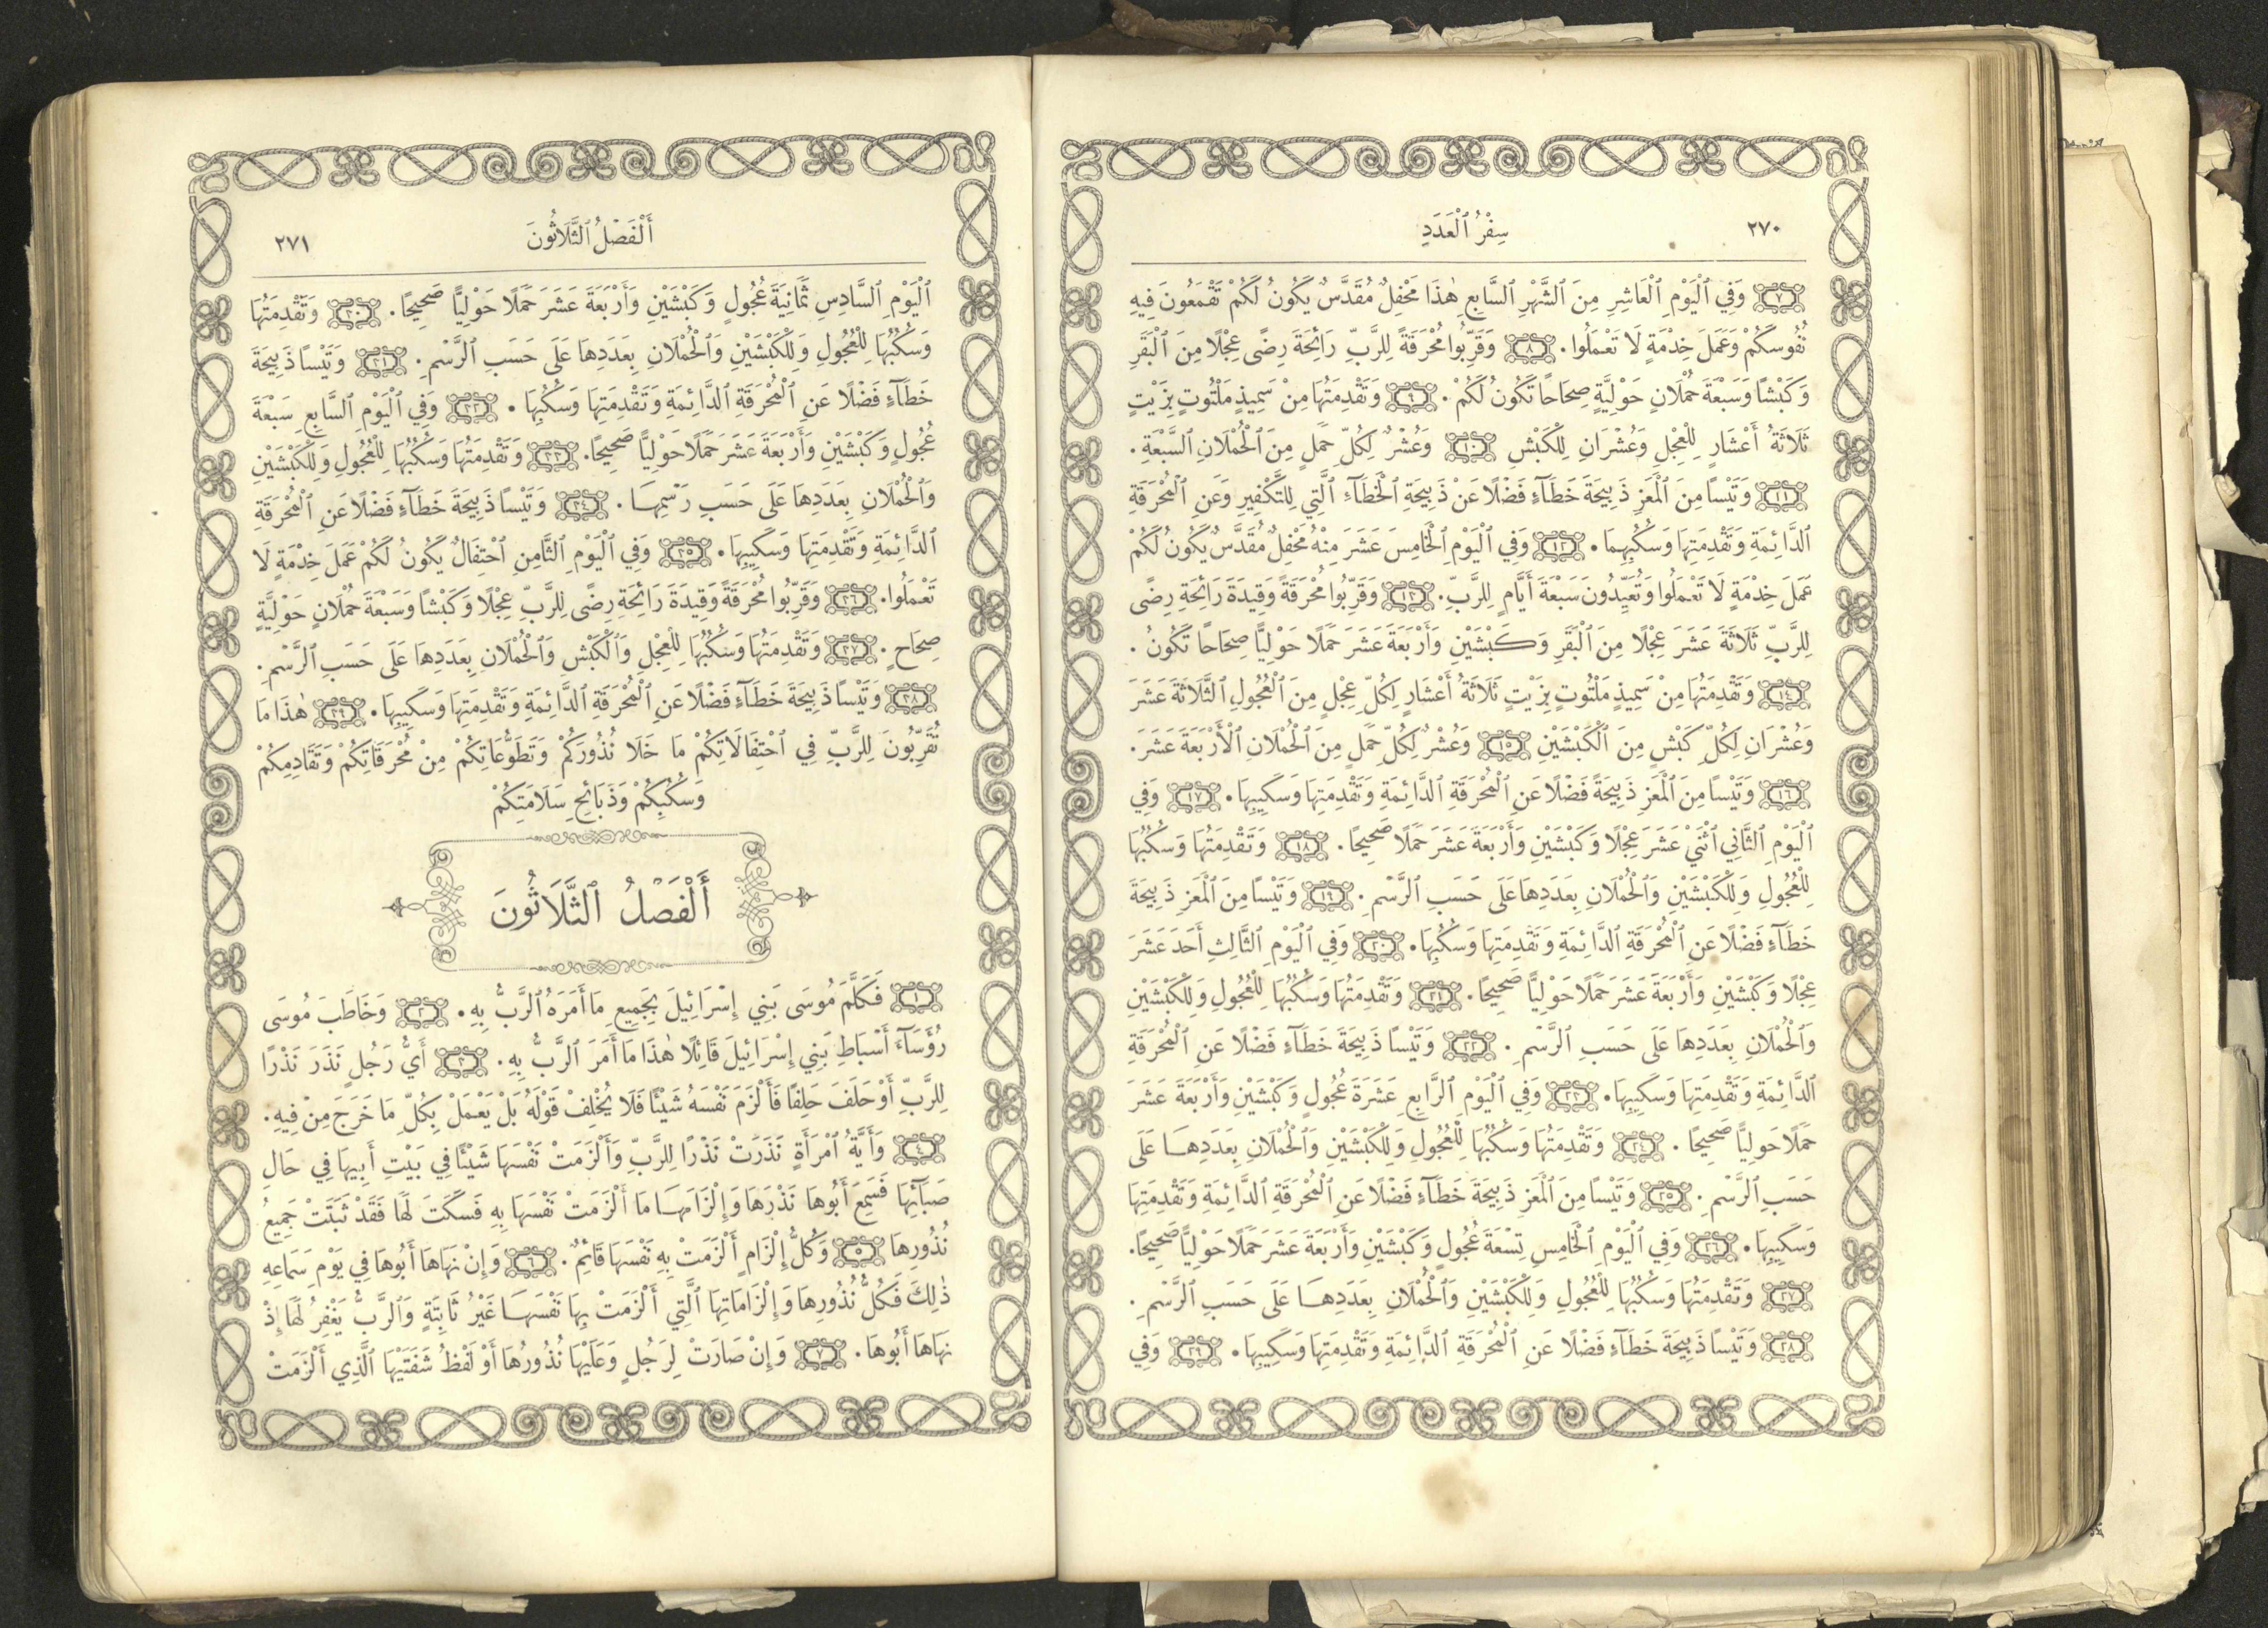 ٢٧٠
سِفْرُ ٱلْعَدَدِ
٧ وَفِي ٱلْيَوْمِ ٱلْعَاشِرِ مِنَ ٱلشَّهْرِ ٱلسَّابِعِ هٰذَا مَحْفِلٌ مُقَدَّسٌ يَكُونُ لَكُمْ تَقْمَعُونَ فِيهِ
نُفُوسَكُمْ وَعَمَلَ خِدْمَةٍ لَا تَعْمَلُوا. ٨ وَقَرِّبُوا مُحْرَقَةً لِلرَّبِّ رَائِحَةَ رِضًى عِجْلًا مِنَ ٱلْبَقَرِ
وَكَبْشًا وَسَبْعَةَ حُمْلَانٍ حَوْلِيَّةٍ صِحَاحًا تَكُونُ لَكُمْ. ٩ وَتَقْدِمَتُهَا مِنْ سَمِيذٍ مَلْتُوتٍ بِزَيْتٍ
ثَلَاثَةُ أَعْشَارٍ لِلْعِجْلِ وَعُشْرَانِ لِلْكَبْشِ ١٠ وَعُشْرٌ لِكُلِّ حَمَلٍ مِنَ ٱلْحُمْلَانِ ٱلسَّبْعَةِ.
١١ وَتَيْسًا مِنَ ٱلْمَعَزِ ذَبِيحَةَ خَطَآءٍ فَضْلًا عَنْ ذَبِيحَةِ ٱلْخَطَآءِ ٱلَّتِي لِلتَّكْفِيرِ وَعَنِ ٱلْمُحْرَقَةِ
ٱلدَّائِمَةِ وَتَقْدِمَتِهَا وَسُكُبِهِمَا. ١٢ وَفِي ٱلْيَوْمِ ٱلْخَامِسَ عَشَرَ مِنْهُ مَحْفِلٌ مُقَدَّسٌ يَكُونُ لَكُمْ
عَمَلَ خِدْمَةٍ لَا تَعْمَلُوا وَتُعَيِّدُونَ سَبْعَةَ أَيَّامٍ لِلرَّبِّ. ١٣ وَقَرِّبُوا مُحْرَقَةً وَقِيدَةَ رَائِحَةِ رِضًى
لِلرَّبِّ ثَلَاثَةَ عَشَرَ عِجْلًا مِنَ ٱلْبَقَرِ وَكَبْشَيْنِ وَأَرْبَعَةَ عَشَرَ حَمَلًا حَوْلِيًّا صِحَاحًا تَكُونُ.
١٤ وَتَقْدِمَتُهَا مِنْ سَمِيذٍ مَلْتُوتٍ بِزَيْتٍ ثَلَاثَةُ أَعْشَارٍ لِكُلِّ عِجْلٍ مِنَ ٱلْعُجُولِ ٱلثَّلَاثَةَ عَشَرَ
وَعُشْرَانِ لِكُلِّ كَبْشٍ مِنَ ٱلْكَبْشَيْنِ ١٥ وَعُشْرٌ لِكُلِّ حَمَلٍ مِنَ ٱلْحُمْلَانِ ٱلْأَرْبَعَةَ عَشَرَ.
١٦ وَتَيْسًا مِنَ ٱلْمَعَزِ ذَبِيحَةً فَضْلًا عَنِ ٱلْمُحْرَقَةِ ٱلدَّائِمَةِ وَتَقْدِمَتِهَا وَسَكِيبِهَا. ١٧ وَفِي
ٱلْيَوْمِ ٱلثَّانِي ٱثْنَيْ عَشَرَ عِجْلًا وَكَبْشَيْنِ وَأَرْبَعَةَ عَشَرَ حَمَلًا صَحِيحًا. ١٨ وَتَقْدِمَتُهَا وَسُكُبُهَا
لِلْعُجُولِ وَلِلْكَبْشَيْنِ وَٱلْحُمْلَانِ بِعَدَدِهَا عَلَى حَسَبِ ٱلرَّسْمِ. ١٩ وَتَيْسًا مِنَ ٱلْمَعَزِ ذَبِيحَةَ
خَطَآءٍ فَضْلًا عَنِ ٱلْمُحْرَقَةِ ٱلدَّائِمَةِ وَتَقْدِمَتِهَا وَسُكُبِهَا. ٢٠ وَفِي ٱلْيَوْمِ ٱلثَّالِثِ أَحَدَ عَشَرَ
عِجْلًا وَكَبْشَيْنِ وَأَرْبَعَةَ عَشَرَ حَمَلًا حَوْلِيًّا صَحِيحًا. ٢١ وَتَقْدِمَتُهَا وَسُكُبُهَا لِلْعُجُولِ وَلِلْكَبْشَيْنِ
وَٱلْحُمْلَانِ بِعَدَدِهَا عَلَى حَسَبِ ٱلرَّسْمِ. ٢٢ وَتَيْسًا ذَبِيحَةَ خَطَآءٍ فَضْلًا عَنِ ٱلْمُحْرَقَةِ
ٱلدَّائِمَةِ وَتَقْدِمَتِهَا وَسَكِيبِهَا. ٢٣ وَفِي ٱلْيَوْمِ ٱلرَّابِعِ عَشَرَةَ عُجُولٍ وَكَبْشَيْنِ وَأَرْبَعَةَ عَشَرَ
حَمَلًا حَولِيًّا صَحِيحًا. ٢٤ وَتَقْدِمَتُهَا وَسُكُبُهَا لِلْعُجُولِ وَلِلْكَبْشَيْنِ وَٱلْحُمْلَانِ بِعَدَدِهَا عَلَى
حَسَبِ ٱلرَّسْمِ. ٢٥ وَتَيْسًا مِنَ ٱلْمَعَزِ ذَبِيحَةَ خَطَآءٍ فَضْلًا عَنِ ٱلْمُحْرَقَةِ ٱلدَّائِمَةِ وَتَقْدِمَتِهَا
وَسَكِيبِهَا. ٢٦ وَفِي ٱلْيَوْمِ ٱلْخَامِسِ تِسْعَةَ عُجُولٍ وَكَبْشَيْنِ وَأَرْبَعَةَ عَشَرَ حَمَلًا حَوْلِيًّا صَحِيحًا.
٢٧ وَتَقْدِمَتُهَا وَسُكُبُهَا لِلْعُجُولِ وَلِلْكَبْشَيْنِ وَٱلْحُمْلَانِ بِعَدَدِهَا عَلَى حَسَبِ ٱلرَّسْمِ.
٢٨ وَتَيْسًا ذَبِيحَةَ خَطَآءٍ فَضْلًا عَنِ ٱلْمُحْرَقَةِ ٱلدَّائِمَةِ وَتَقْدِمَتِهَا وَسَكِيبِهَا. ٢٩ وَفِي
أَلْفَصْلُ ٱلثَّلَاثُونَ
٢٧١
ٱلْيَوْمِ ٱلسَّادِسِ ثَمَانِيَةَ عُجُولٍ وَكَبْشَيْنِ وَأَرْبَعَةَ عَشَرَ حَمَلًا حَوْلِيًّا صَحِيحًا. ٣٠ وَتَقْدِمَتُهَا
وَسُكُبُهَا لِلْعُجُولِ وَلِلْكَبْشَيْنِ وَٱلْحُمْلَانِ بِعَدَدِهَا عَلَى حَسَبِ ٱلرَّسْمِ. ٣١ وَتَيْسًا ذَبِيحَةَ
خَطَآءٍ فَضْلًا عَنِ ٱلْمُحْرَقَةِ ٱلدَّائِمَةِ وَتَقْدِمَتِهَا وَسُكُبِهَا. ٣٢ وَفِي ٱلْيَوْمِ ٱلسَّابِعِ سَبْعَةَ
عُجُولٍ وَكَبْشَيْنِ وَأَرْبَعَةَ عَشَرَ حَمَلًا حَوْلِيًّا صَحِيحًا. ٣٣ وَتَقْدِمَتُهَا وَسُكُبُهَا لِلْعُجُولِ وَلِلْكَبْشَيْنِ
وَٱلْحُمْلَانِ بِعَدَدِهَا عَلَى حَسَبِ رَسْمِهَا. ٣٤ وَتَيْسًا ذَبِيحَةَ خَطَآءٍ فَضْلًا عَنِ ٱلْمُحْرَقَةِ
ٱلدَّائِمَةِ وَتَقْدِمَتِهَا وَسَكِيبِهَا. ٣٥ وَفِي ٱلْيَوْمِ ٱلثَّامِنِ ٱحْتِفَالٌ يَكُونُ لَكُمْ عَمَلَ خِدْمَةٍ لَا
تَعْمَلُوا. ٣٦ وَقَرِّبُوا مُحْرَقَةً وَقِيدَةَ رَائِحَةِ رِضًى لِلرَّبِّ عِجْلًا وَكَبْشًا وَسَبْعَةَ حُمْلَانٍ حَوْلِيَّةٍ
صِحَاحٍ. ٣٧ وَتَقْدِمَتُهَا وَسُكُبُهَا لِلْعِجْلِ وَٱلْكَبْشِ وَٱلْحُمْلَانِ بِعَدَدِهَا عَلَى حَسَبِ ٱلرَّسْمِ.
٣٨ وَتَيْسًا ذَبِيحَةَ خَطَآءٍ فَضْلًا عَنِ ٱلْمُحْرَقَةِ ٱلدَّائِمَةِ وَتَقْدِمَتِهَا وَسَكِيبِهَا. ٣٩ هٰذَا مَا
تُقَرِّبُونَ لِلرَّبِّ فِي ٱحْتِفَالَاتِكُمْ مَا خَلَا نُذُورَكُمْ وَتَطَوُّعَاتِكُمْ مِنْ مُحْرَقَاتِكُمْ وَتَقَادِمِكُمْ
وَسُكُبِكُمْ وَذَبَائِحِ سَلَامَتِكُمْ
أَلْفَصْلُ ٱلثَّلَاثُونَ
١ فَكَلَّمَ مُوسَى بَنِي إِسْرَائِيلَ بِجَمِيعِ مَا أَمَرَهُ ٱلرَّبُّ بِهِ. ٢ وَخَاطَبَ مُوسَى
رُؤَسَآءَ أَسْبَاطِ بَنِي إِسْرَائِيلَ قَائِلًا هٰذَا مَا أَمَرَ ٱلرَّبُّ بِهِ. ٣ أَيُّ رَجُلٍ نَذَرَ نَذْرًا
لِلرَّبِّ أَوْ حَلَفَ حَلِفًا فَأَلْزَمَ نَفْسَهُ شَيْئًا فَلَا يُخْلِفْ قَوْلَهُ بَلْ يَعْمَلْ بِكُلِّ مَا خَرَجَ مِنْ فِيهِ.
٤ وَأَيَّةُ ٱمْرَأَةٍ نَذَرَتْ نَذْرًا لِلرَّبِّ وَأَلْزَمَتْ نَفْسَهَا شَيْئًا فِي بَيْتِ أَبِيهَا فِي حَالِ
صَبَآئِهَا فَسَمِعَ أَبُوهَا نَذْرَهَا وَإِلْزَامَهَا مَا أَلْزَمَتْ نَفْسَهَا بِهِ فَسَكَتَ لَهَا فَقَدْ ثَبَتَتْ جَمِيعُ
نُذُورِهَا ٥ وَكُلُّ إِلْزَامٍ أَلْزَمَتْ بِهِ نَفْسَهَا قَائِمٌ. ٦ وَإِنْ نَهَاهَا أَبُوهَا فِي يَوْمِ سَمَاعِهِ
ذٰلِكَ فَكُلُّ نُذُورِهَا وَإِلْزَامَاتِهَا ٱلَّتِي أَلْزَمَتْ بِهَا نَفْسَهَا غَيْرُ ثَابِتَةٍ وَٱلرَّبُّ يَغْفِرُ لَهَا إِذْ
نَهَاهَا أَبُوهَا. ٧ وَإِنْ صَارَتْ لِرَجُلٍ وَعَلَيْهَا نُذُورُهَا أَوْ لَفْظُ شَفَتَيْهَا ٱلَّذِي أَلْزَمَتْ